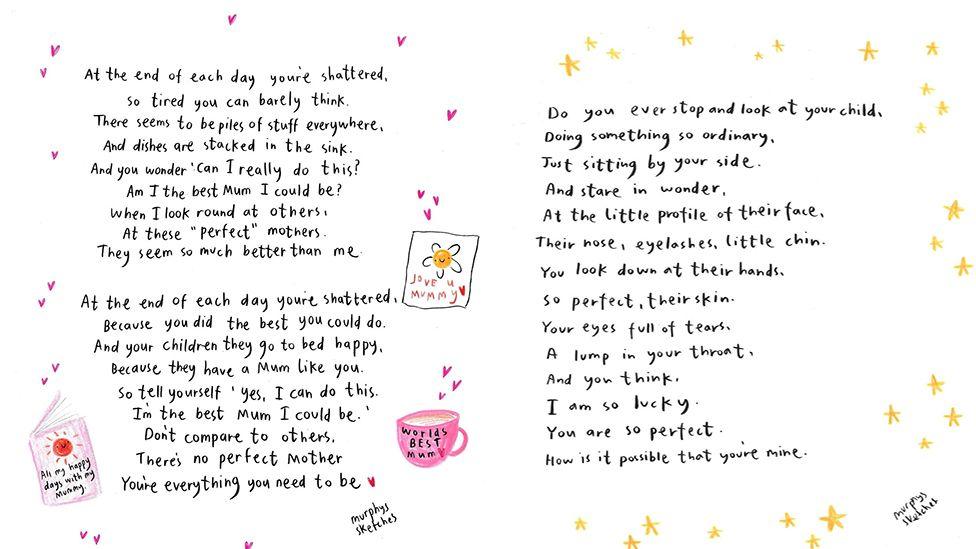 At the end of each day you're shattered,
so tired you can barely think.
There seems to be piles of stuff everywhere,
And dishes are stacked in the sink.
And you wonder 'Can I really do this?
Am I the best Mum I could be?
When I look round at others,
At these "perfect" mothers.
They seem so much better than me.
At the end of each day you're shattered,
Because you did the best you could do.
And your children they go to bed happy,
Because they have a Mum like you.
So tell yourself 'yes, I can do this.
I'm the best Mum I could be.'
Don't compare to others,
There's no perfect Mother
You're everything you need to be
love u
mummy
All my happy
days with my
Mummy.
Worlds
BEST
Mum
murphys
sketches
Do you ever stop and look at your child,
Doing something so ordinary,
Just sitting by your side.
And stare in wonder,
At the little profile of their face,
Their nose, eyelashes, little chin.
You look down at their hands,
So perfect, their skin.
Your eyes full of tears,
A lump in your throat,
And you think,
I am so lucky.
You are so perfect.
How is it possible that you're mine.
murphys
sketches